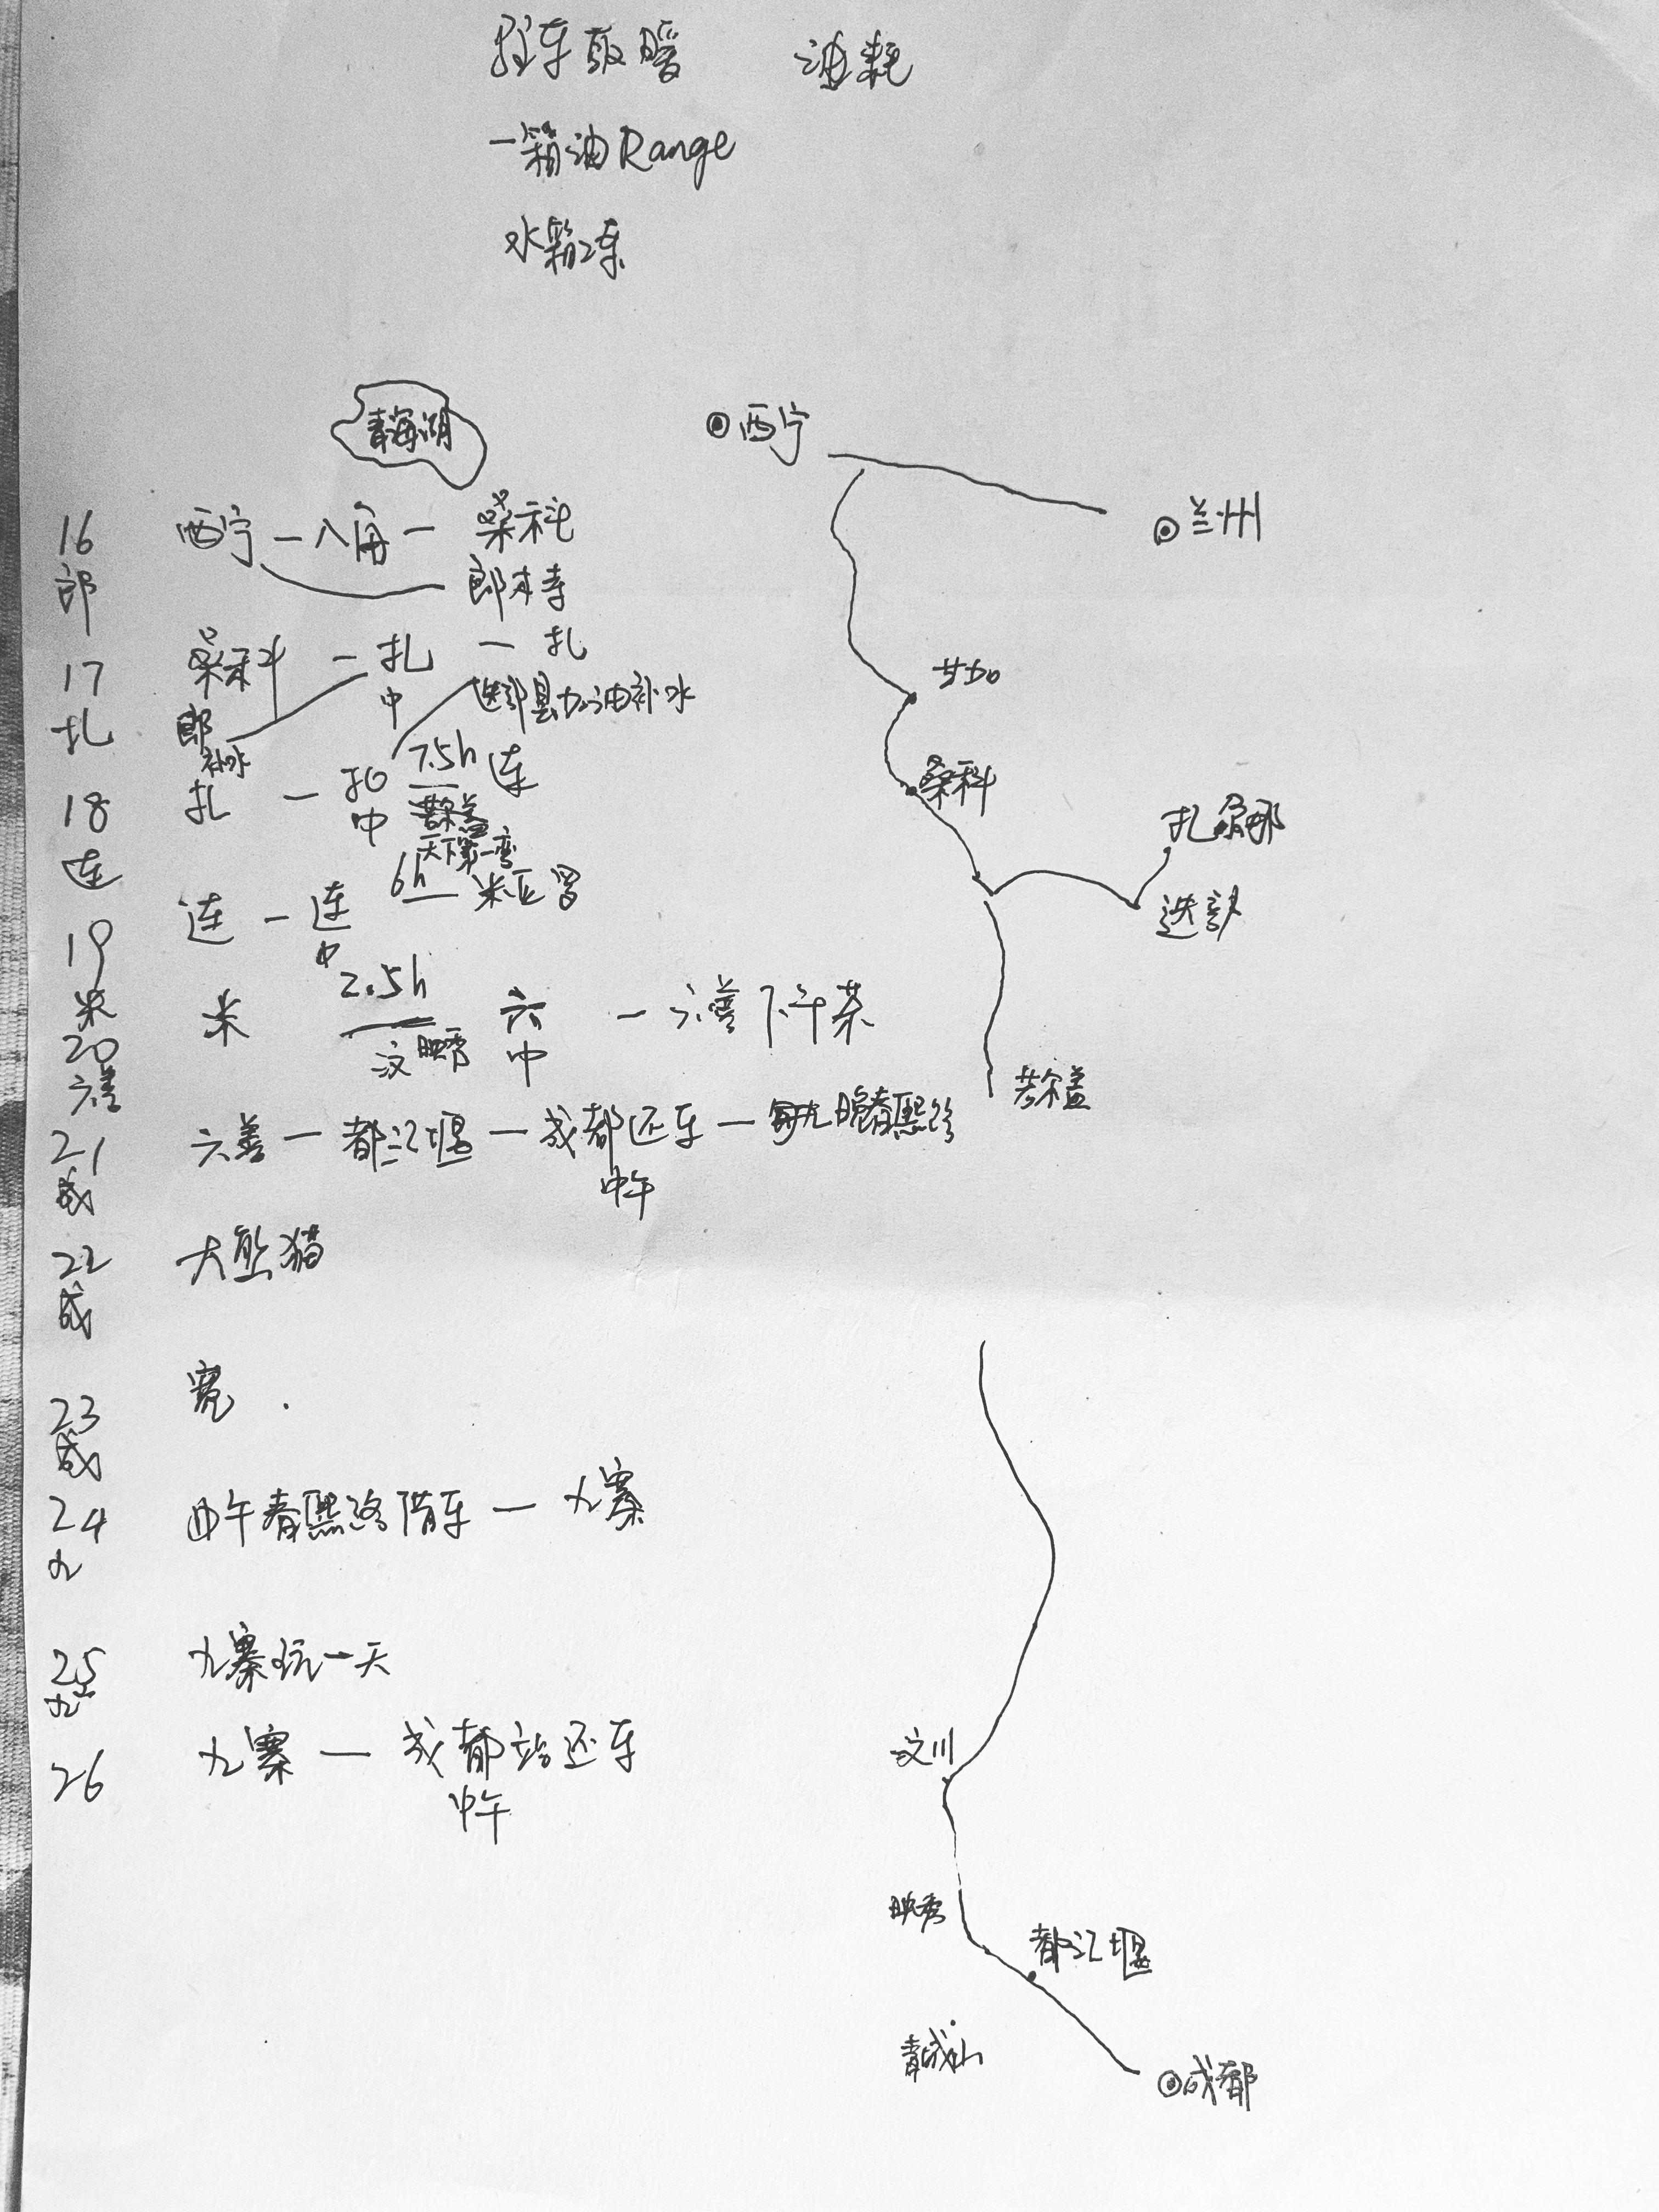 驻车取暖 油耗
一箱油Range
水箱冻
青海湖
西宁
兰州
16 西宁 — 八角 — 桑科
郎 郎木寺
甘加
17 桑科 — 扎 — 扎
中 迭部县加油补水
扎 郎
补水
桑科
扎尕那
迭部
18 扎 — 扎 7.5h 连
中 若尔盖
天下第一弯
连
19 连 — 连 6h 米亚罗
中
米
20 米 2.5h 六 — 六善下午茶
汶 映秀 中
六善
若尔盖
21 六善 — 都江堰 — 成都还车 — 晚春熙路
中午
成
22 大熊猫
成
23 宽
成
24 中午春熙路借车 — 九寨
九
25 九寨玩一天
九
26 九寨 — 成都站还车
中午
汶川
映秀
都江堰
青城山
成都